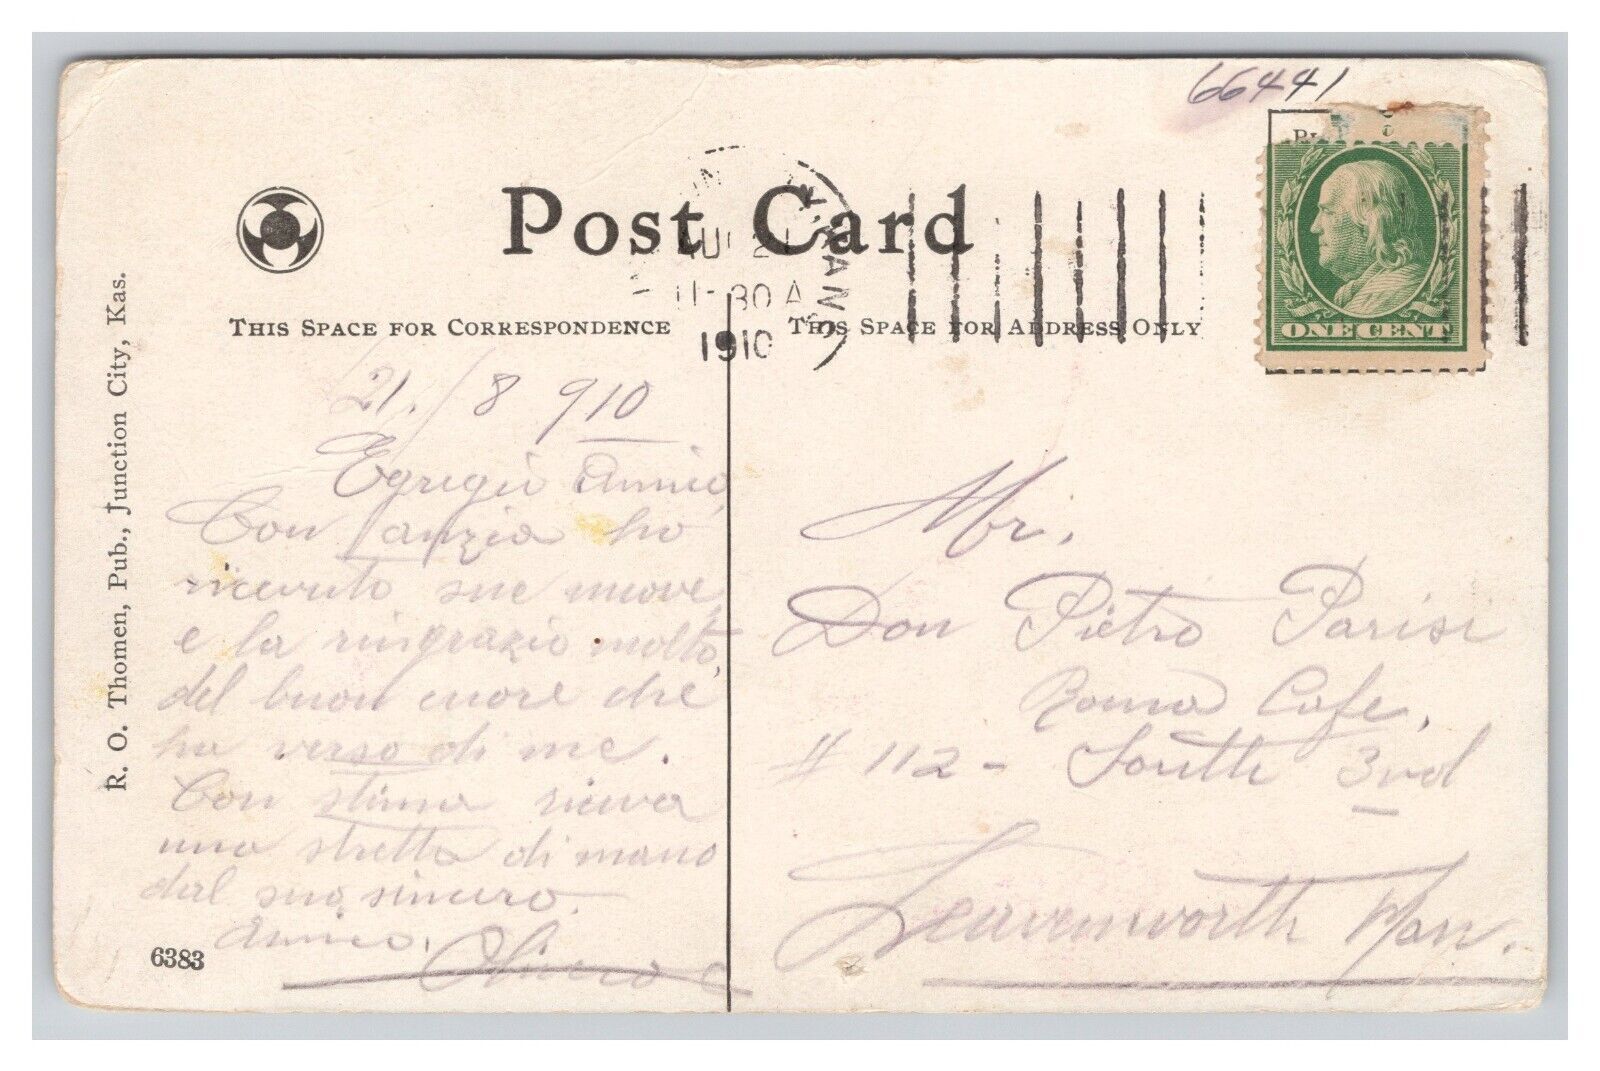 66441
Post Card
JUNC KANS
AUG 21
11-30 A
1910
THIS SPACE FOR CORRESPONDENCE
THIS SPACE FOR ADDRESS ONLY
ONE CENT
R. O. Thomen, Pub., Junction City, Kas.
21./8 910
Egregio Amico,
Con anzia ho
ricevuto sue nuove,
e la ringrazio molto,
del buon cuore che
ha verso di me.
Con stima riceva
una stretta di mano
dal suo, sincero.
Amico.
6383
Mr.
Don Pietro Parisi
Roma Cafe,
# 112 - South 3rd
Leavenworth Kan.